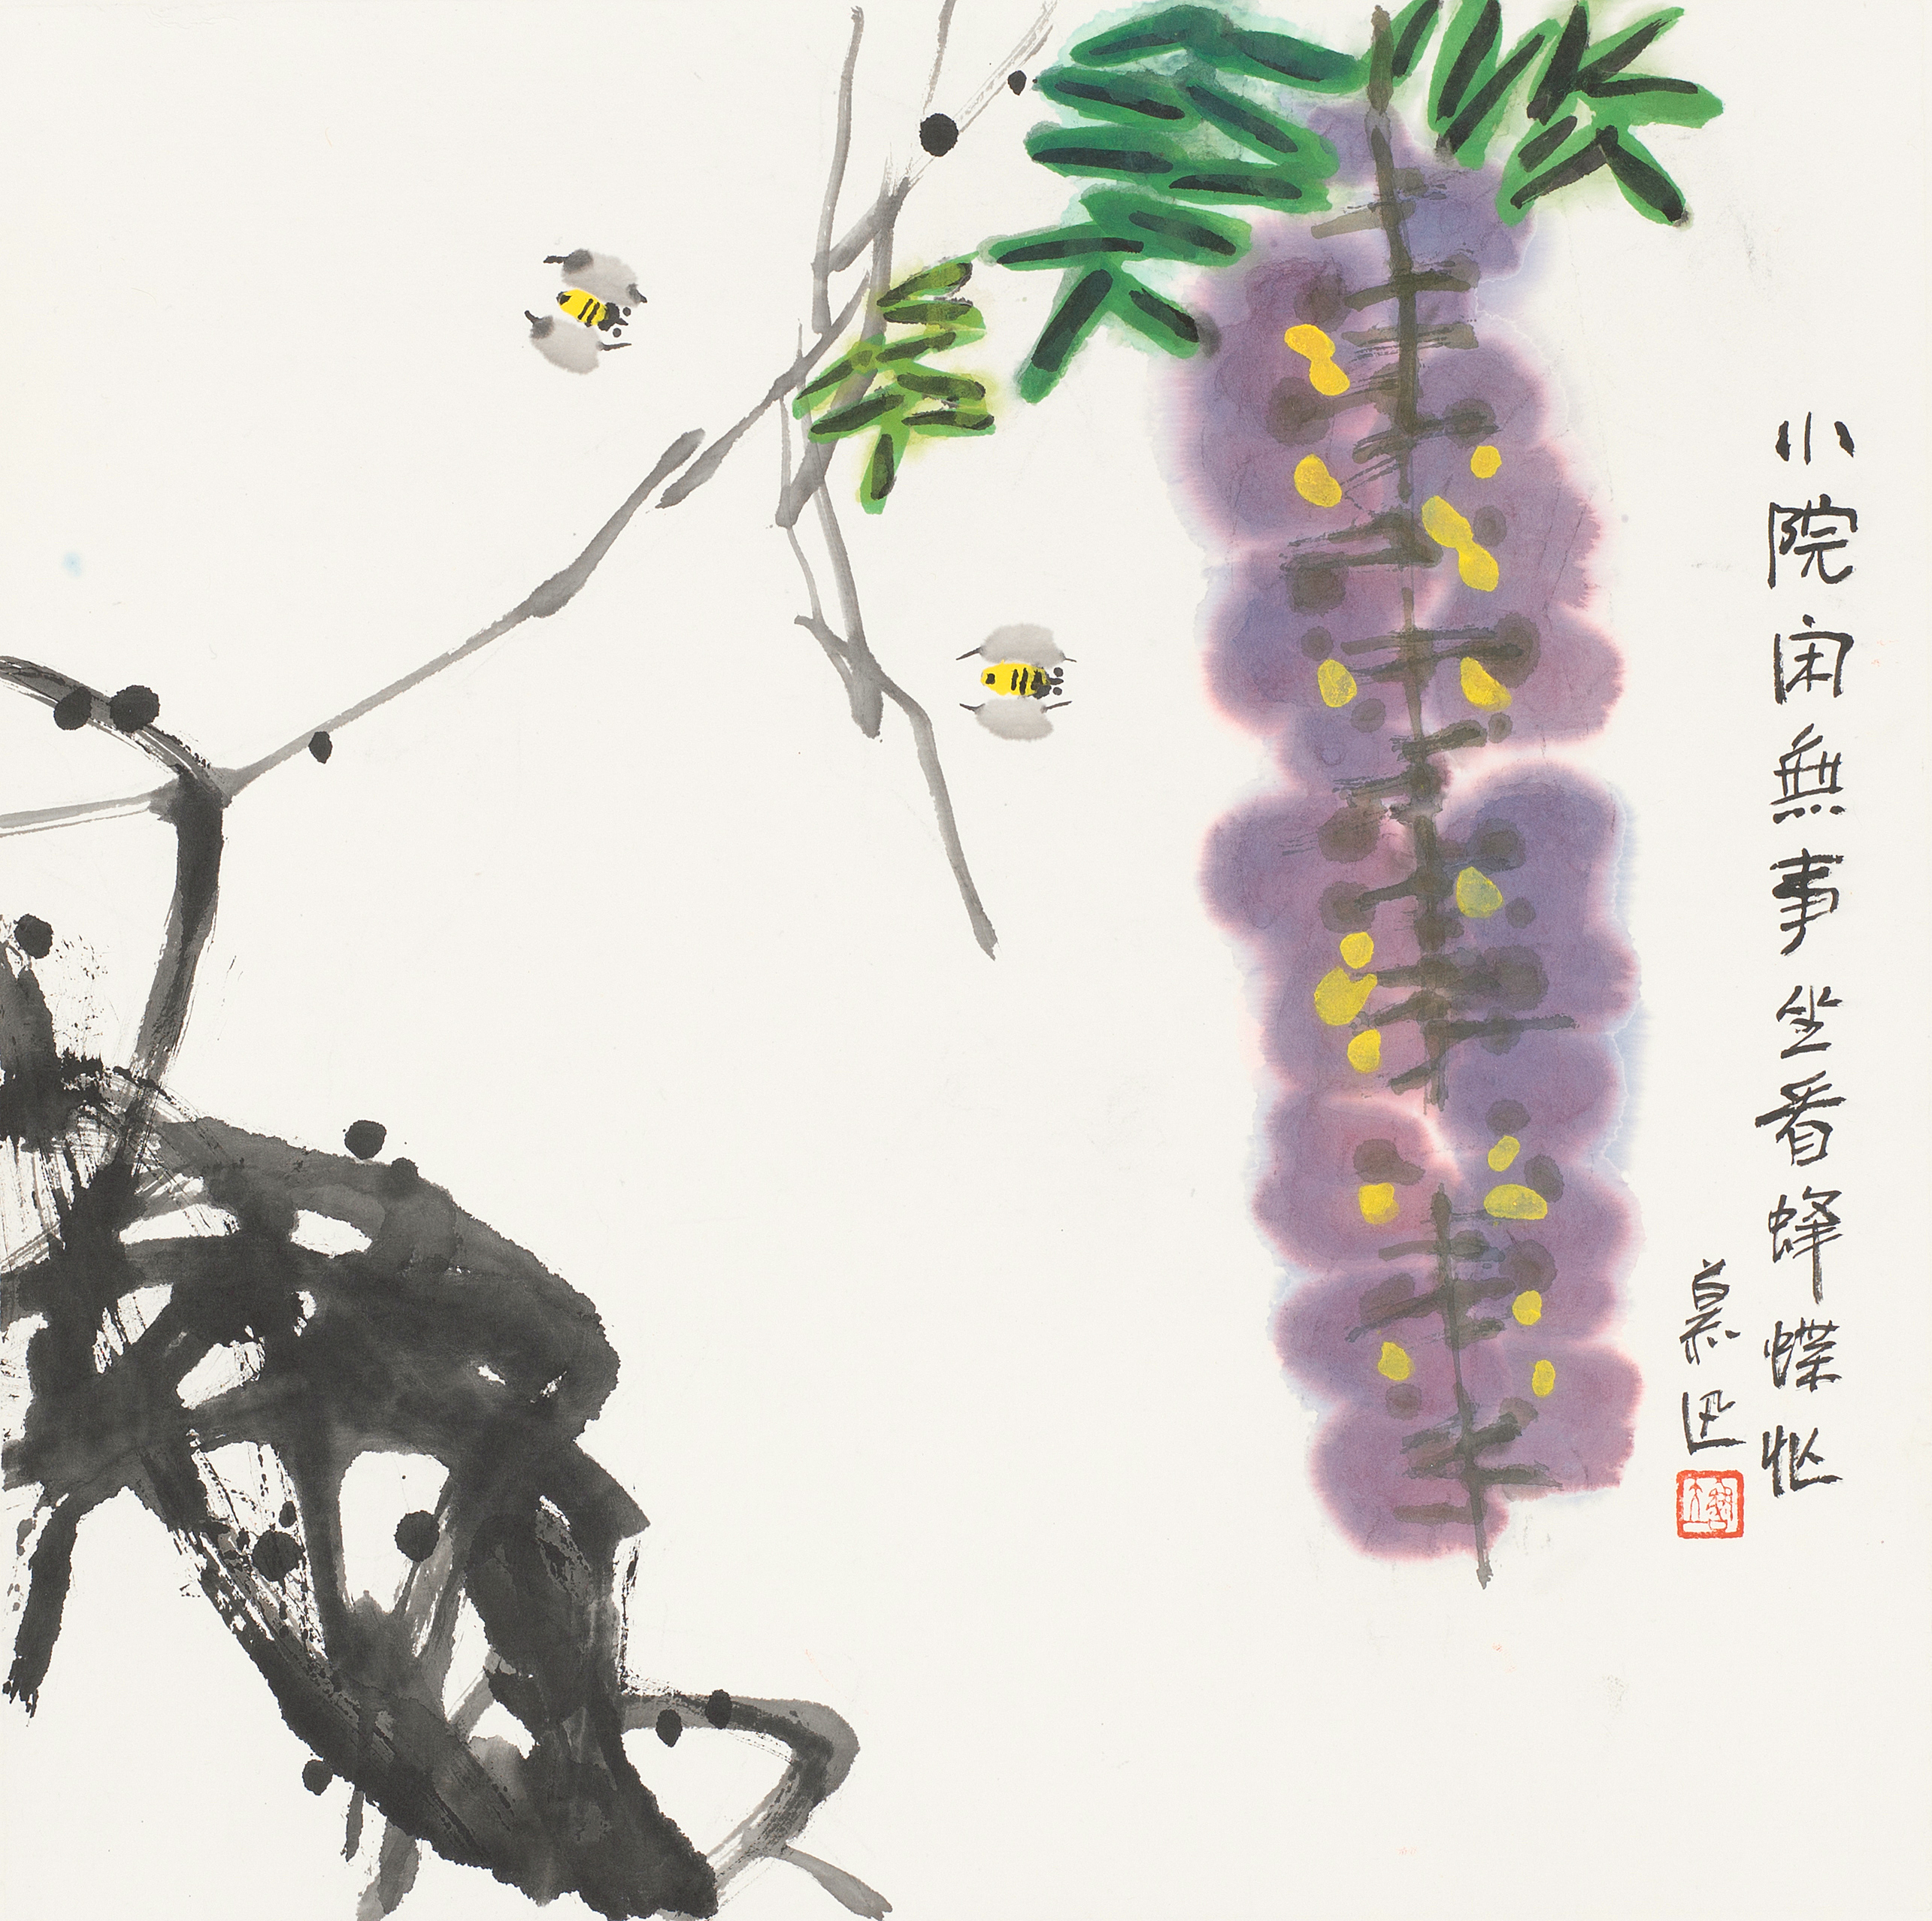 小院闲無事坐看蜂蝶忙
慕迅